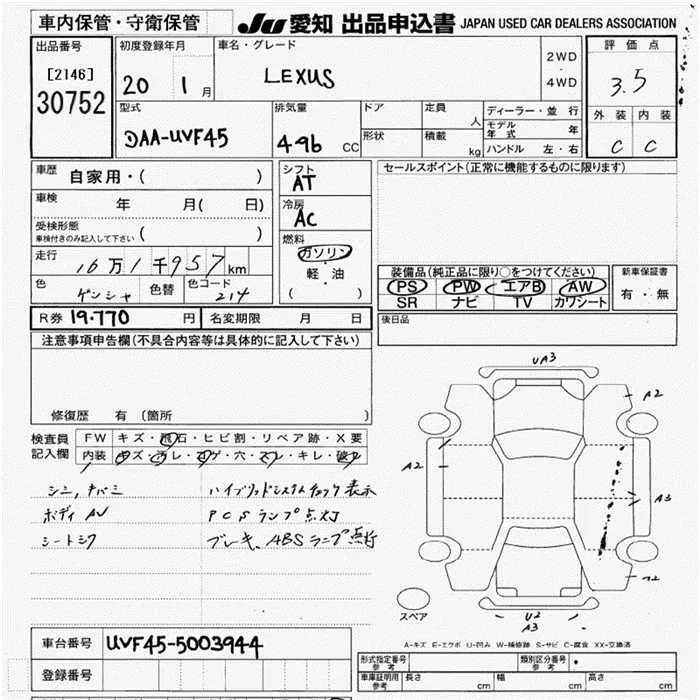 車内保管・守衛保管
JU 愛知 出品申込書 JAPAN USED CAR DEALERS ASSOCIATION
出品番号
[2146]
30752
初度登録年月
20 1月
車名・グレード
LEXUS
2WD
・
4WD
評価点
3.5
外装 内装
C C
型式
DAA-UVF45
排気量
496 CC
ドア
形状
定員 人
積載 kg
ディーラー・並行
モデル年式 年
ハンドル 左・右
車歴 自家用・( )
車検 年 月( 日)
受検形態
車検付きのみ記入して下さい ( )
走行 16万1千957km
色 ゲンシャ 色替 色コード 214
シフト
AT
冷房
AC
燃料
ガソリン
軽・油
( )
セールスポイント(正常に機能するものに限ります)
装備品(純正品に限り○をつけてください)
PS PW エアB AW
SR ナビ TV カワシート
新車保証書
有・無
R券 19.770 円 名変期限 月 日
後日品
注意事項申告欄(不具合内容等は具体的に記入して下さい)
修復歴 有(箇所 )
検査員
記入欄
FW キズ・飛石・ヒビ割・リペア跡・X要
内装 キズ・汚レ・コゲ・穴・スレ・キレ・破レ
シミ、キバミ ハイブリッドシステムチェック表示
ボディAU PCSランプ点灯
シートシワ ブレーキ、ABSランプ点灯
UA3
A2
A2
A3
A2
U2
A3
スペア
A-キズ E-エクボ U-凹み W-補修跡 S-サビ C-腐食 XX-交換済
車台番号 UVF45-5003944
登録番号
型式指定番号 参考
類別区分番号 参考
車庫証明用 参考 長さ cm 幅 cm 高さ cm